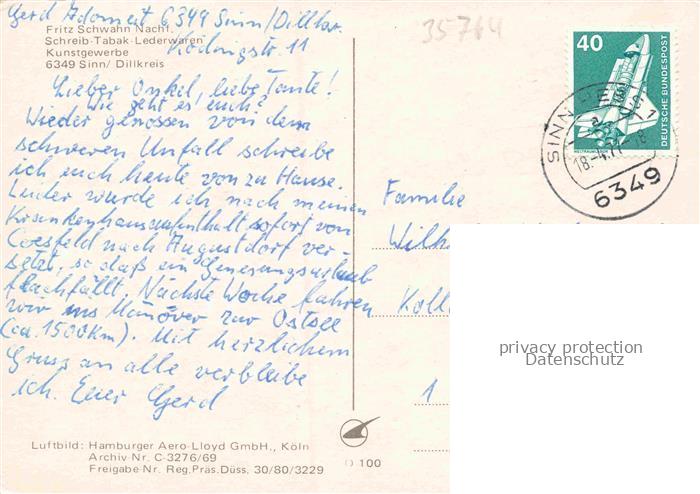 Gerd Adomeit 6349 Sinn/Dillkr.
Ködnigstr. 11
Fritz Schwahn Nachf.
Schreib-Tabak-Lederwaren
Kunstgewerbe
6349 Sinn/ Dillkreis
35764
Lieber Onkel, liebe Tante!
Wie geht es euch?
Wieder genesen von dem
schweren Unfall schreibe
ich euch heute von zu Hause.
Leider wurde ich nach meinen
Krankenhausaufenthalt sofort von
Coesfeld nach Augustdorf ver-
setzt, so daß ein Genesungsurlaub
flachfällt. Nächste Woche fahren
wir ins Manöver zur Ostsee
(ca. 1500 km). Mit herzlichem
Gruss an alle verbleibe
ich. Euer Gerd
40
DEUTSCHE BUNDESPOST
SINN
18.-4.77-18
6349
Familie
Wilh
Koll
1
privacy protection
Datenschutz
Luftbild: Hamburger Aero-Lloyd GmbH., Köln
Archiv-Nr. C-3276/69
Freigabe-Nr. Reg.Präs.Düss. 30/80/3229
D 100